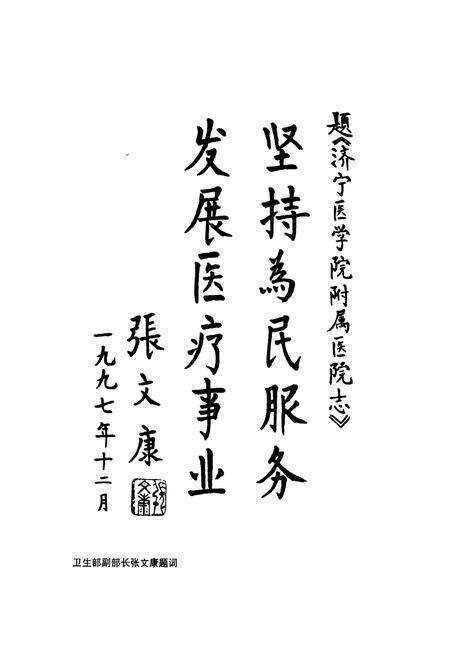 题《济宁医学院附属医院志》
坚持為民服务
发展医疗事业
張文康
一九九七年十二月
张文康
卫生部副部长张文康题词